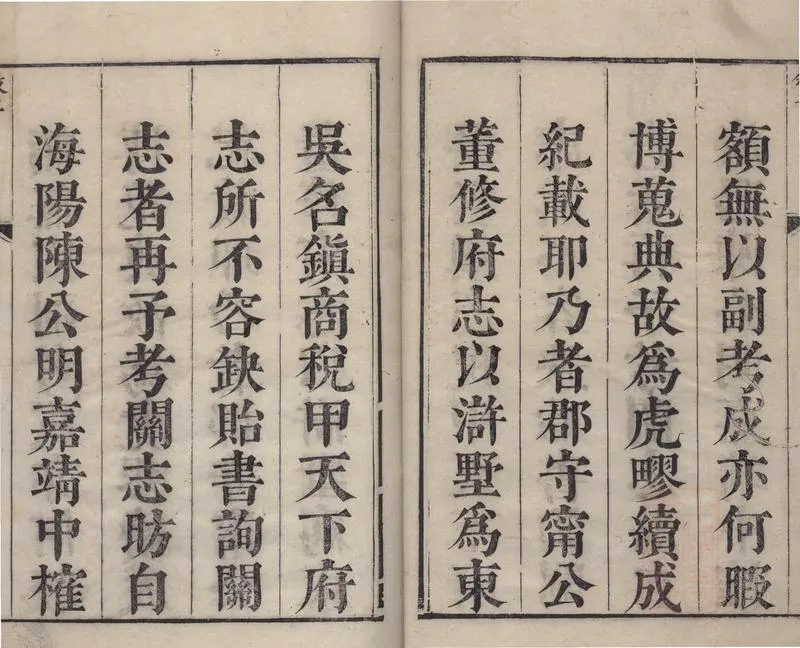 額無以副考成亦何暇
博蒐典故爲虎疁續成
紀載耶乃者郡守甯公
董修府志以滸墅爲東
吳名鎭商稅甲天下府
志所不容缺貽書詢關
志者再予考關志昉自
海陽陳公明嘉靖中榷